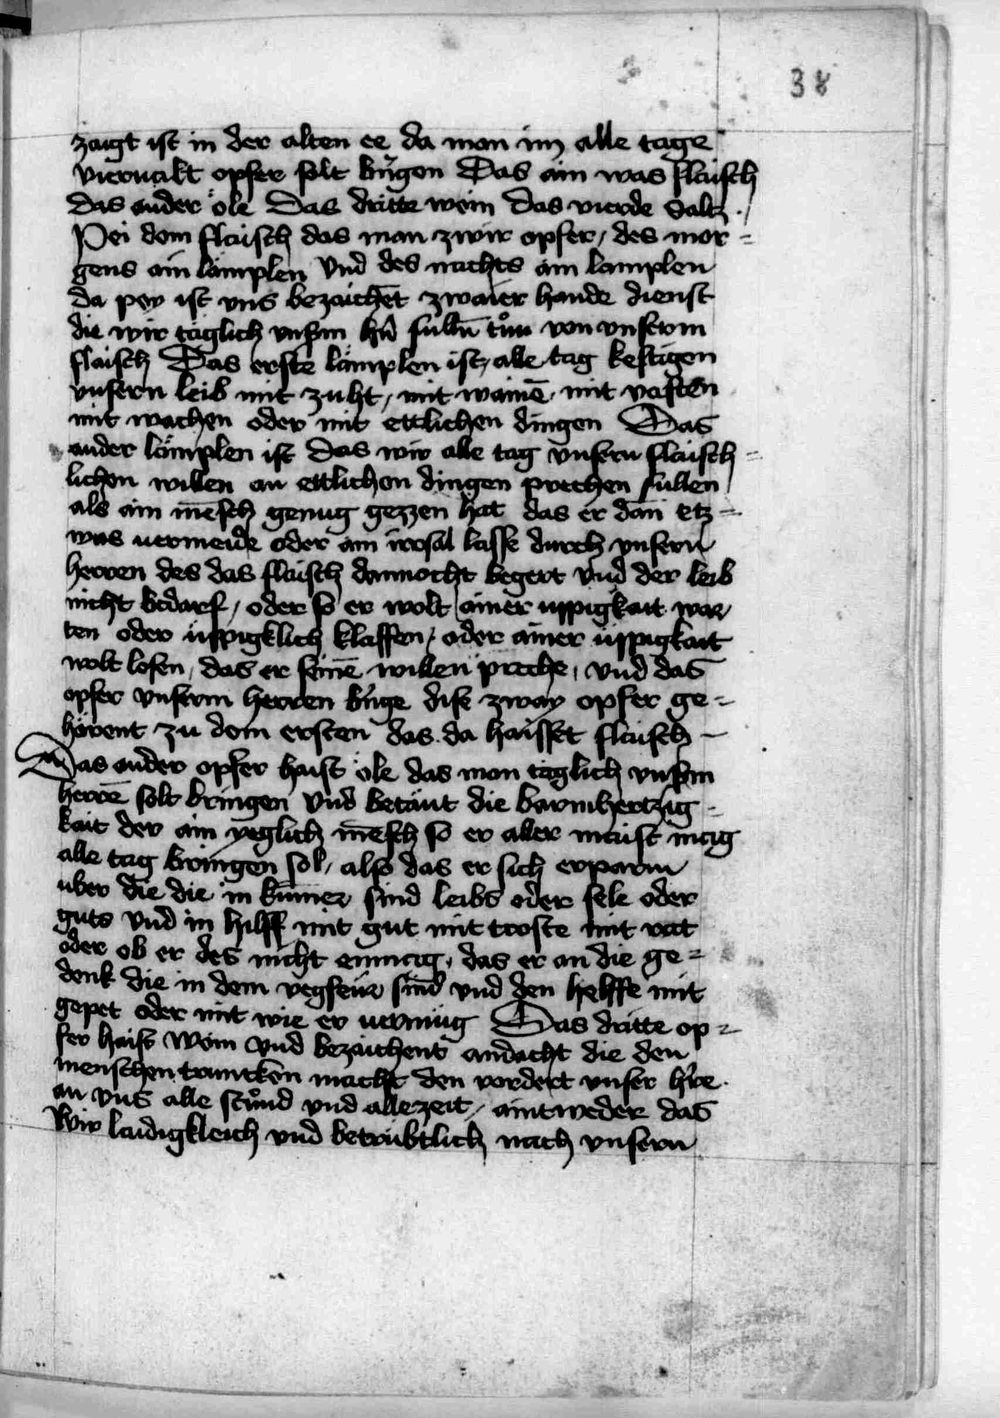 38
zaigt ist in der alten ee da man im alle tage
vierualt opfer solt bringen Das ain was flaisch
das ander öle Das dritte wein das vierde Saltz
Pei dem flaisch das man zwir opfer, des mor=
gens ain lämplen Vnd des nachts ain lamplen
da pey ist vns bezaichet zwaier hande dienst
die wir täglich vnßm hñ süllñ tůn von vnserm
flaisch Das erste lämplen ist, alle tag kestigen
vnsern leib mit zuht, mit wainē mit vasten
mit wachen oder mit ettlichen dingen Das
ander lämplen ist das wir alle tag vnsern flaisch=
lichen willen an ettlichen dingen prechen süllen
als ain mēsch genug gezzen hat das er dan etz=
was uermeide oder ain irosal lasse durch vnsern
herren des das flaisch dannocht begert vnd der leib
nicht bedarf, oder so er wolt ainer uppigkait war
ten oder üppigklich klaffen, oder ainer üppigkait
wolt losen, das er seinē willen preche, vnd das
opfer vnserm herren bringe dise zway opfer ge=
hörent zu dem ersten das da haisset flaisch
Das ander opfer haist öle das man täglich vnßm
herrē solt bringen Vnd betäut die barmhertzig=
kait der ain yeglich mēsch so er aller maist mag
alle tag bringen sol, also das er sich erparm
uber die die in kumer sind leibs oder sele oder
guts vnd in hilff mit gut mit troste mit rat
oder ob er des nicht enmag, das er an die ge=
denk die in dem vegfeür sind vnd den helffe mit
gepet oder mit wie er uermüg Das dritte op=
fer haiss wein vnd bezaichent andacht die den
menschen truncken macht den vordert vnser hre
an vns alle stůnd vnd allezeit, aintweder das
Wir laidigkleich vnd betrübtlich nach vnsern